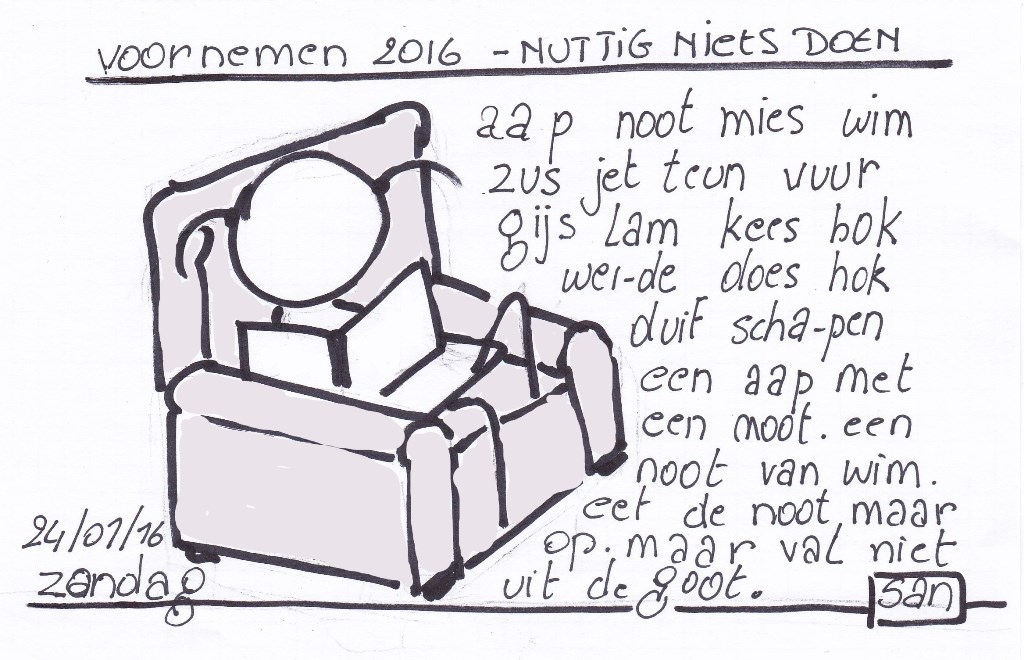 voornemen 2016 - NUTTIG NietS DOEN
aap noot mies wim
zus jet teun vuur
gijs Lam kees bok
wei-de does hok
duif scha-pen
een aap met
een noot. een
noot van wim.
eet de noot maar
op. maar val niet
uit de goot.
24/01/16
zandag
san